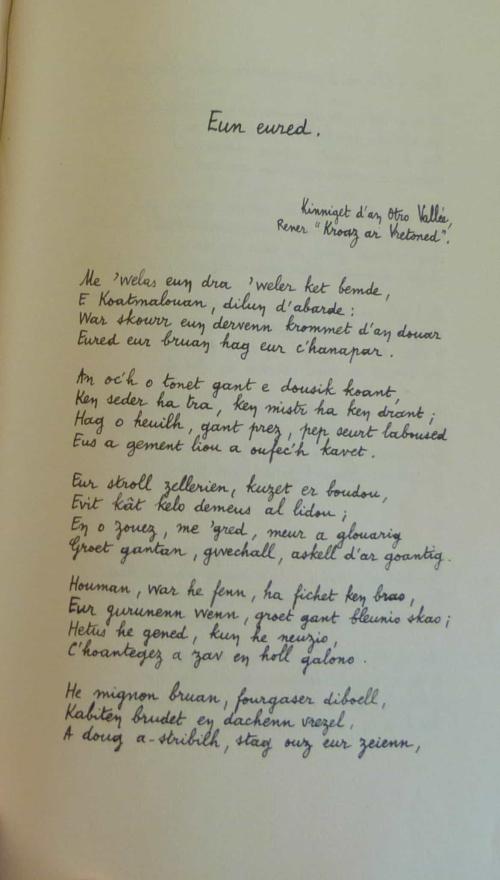 Eun eured.
Kinniget d'aɳ Otro Vallée,
Rener "Kroaz ar Vretoned".
Me 'welas euɳ dra 'weler ket bemde,
E Koatmalouan, diluɳ d'abarde :
War skourr euɳ dervenn krommet d'aɳ douar
Eured eur bruaɳ hag eur c'hanapar.
Aɳ oc'h o tonet gant e dousik koant,
Keɳ seder ha tra, keɳ mistr ha keɳ drant ;
Hag o heuilh, gant prez, pep seurt laboused
Eus a gement liou a oufec'h kavet.
Eur stroll zellerien, kuzet er boudou,
Evit kât kelo demeus al lidou ;
Eɳ o zouez, me 'gred, meur a glouarig
Groet gantaɳ, gwechall, askell d'ar goantig.
Houmaɳ, war he fenn, ha fichet keɳ brao,
Eur gurunenn wenn, groet gant bleunio skao ;
Hetus he gened, kuɳ he neuzio,
C'hoantegez a zav eɳ holl galono.
He mignon bruaɳ, fourgaser diboell,
Kabiteɳ brudet eɳ dachenn vrezel,
A doug a-stribilh, stag ouz eur zeienn,